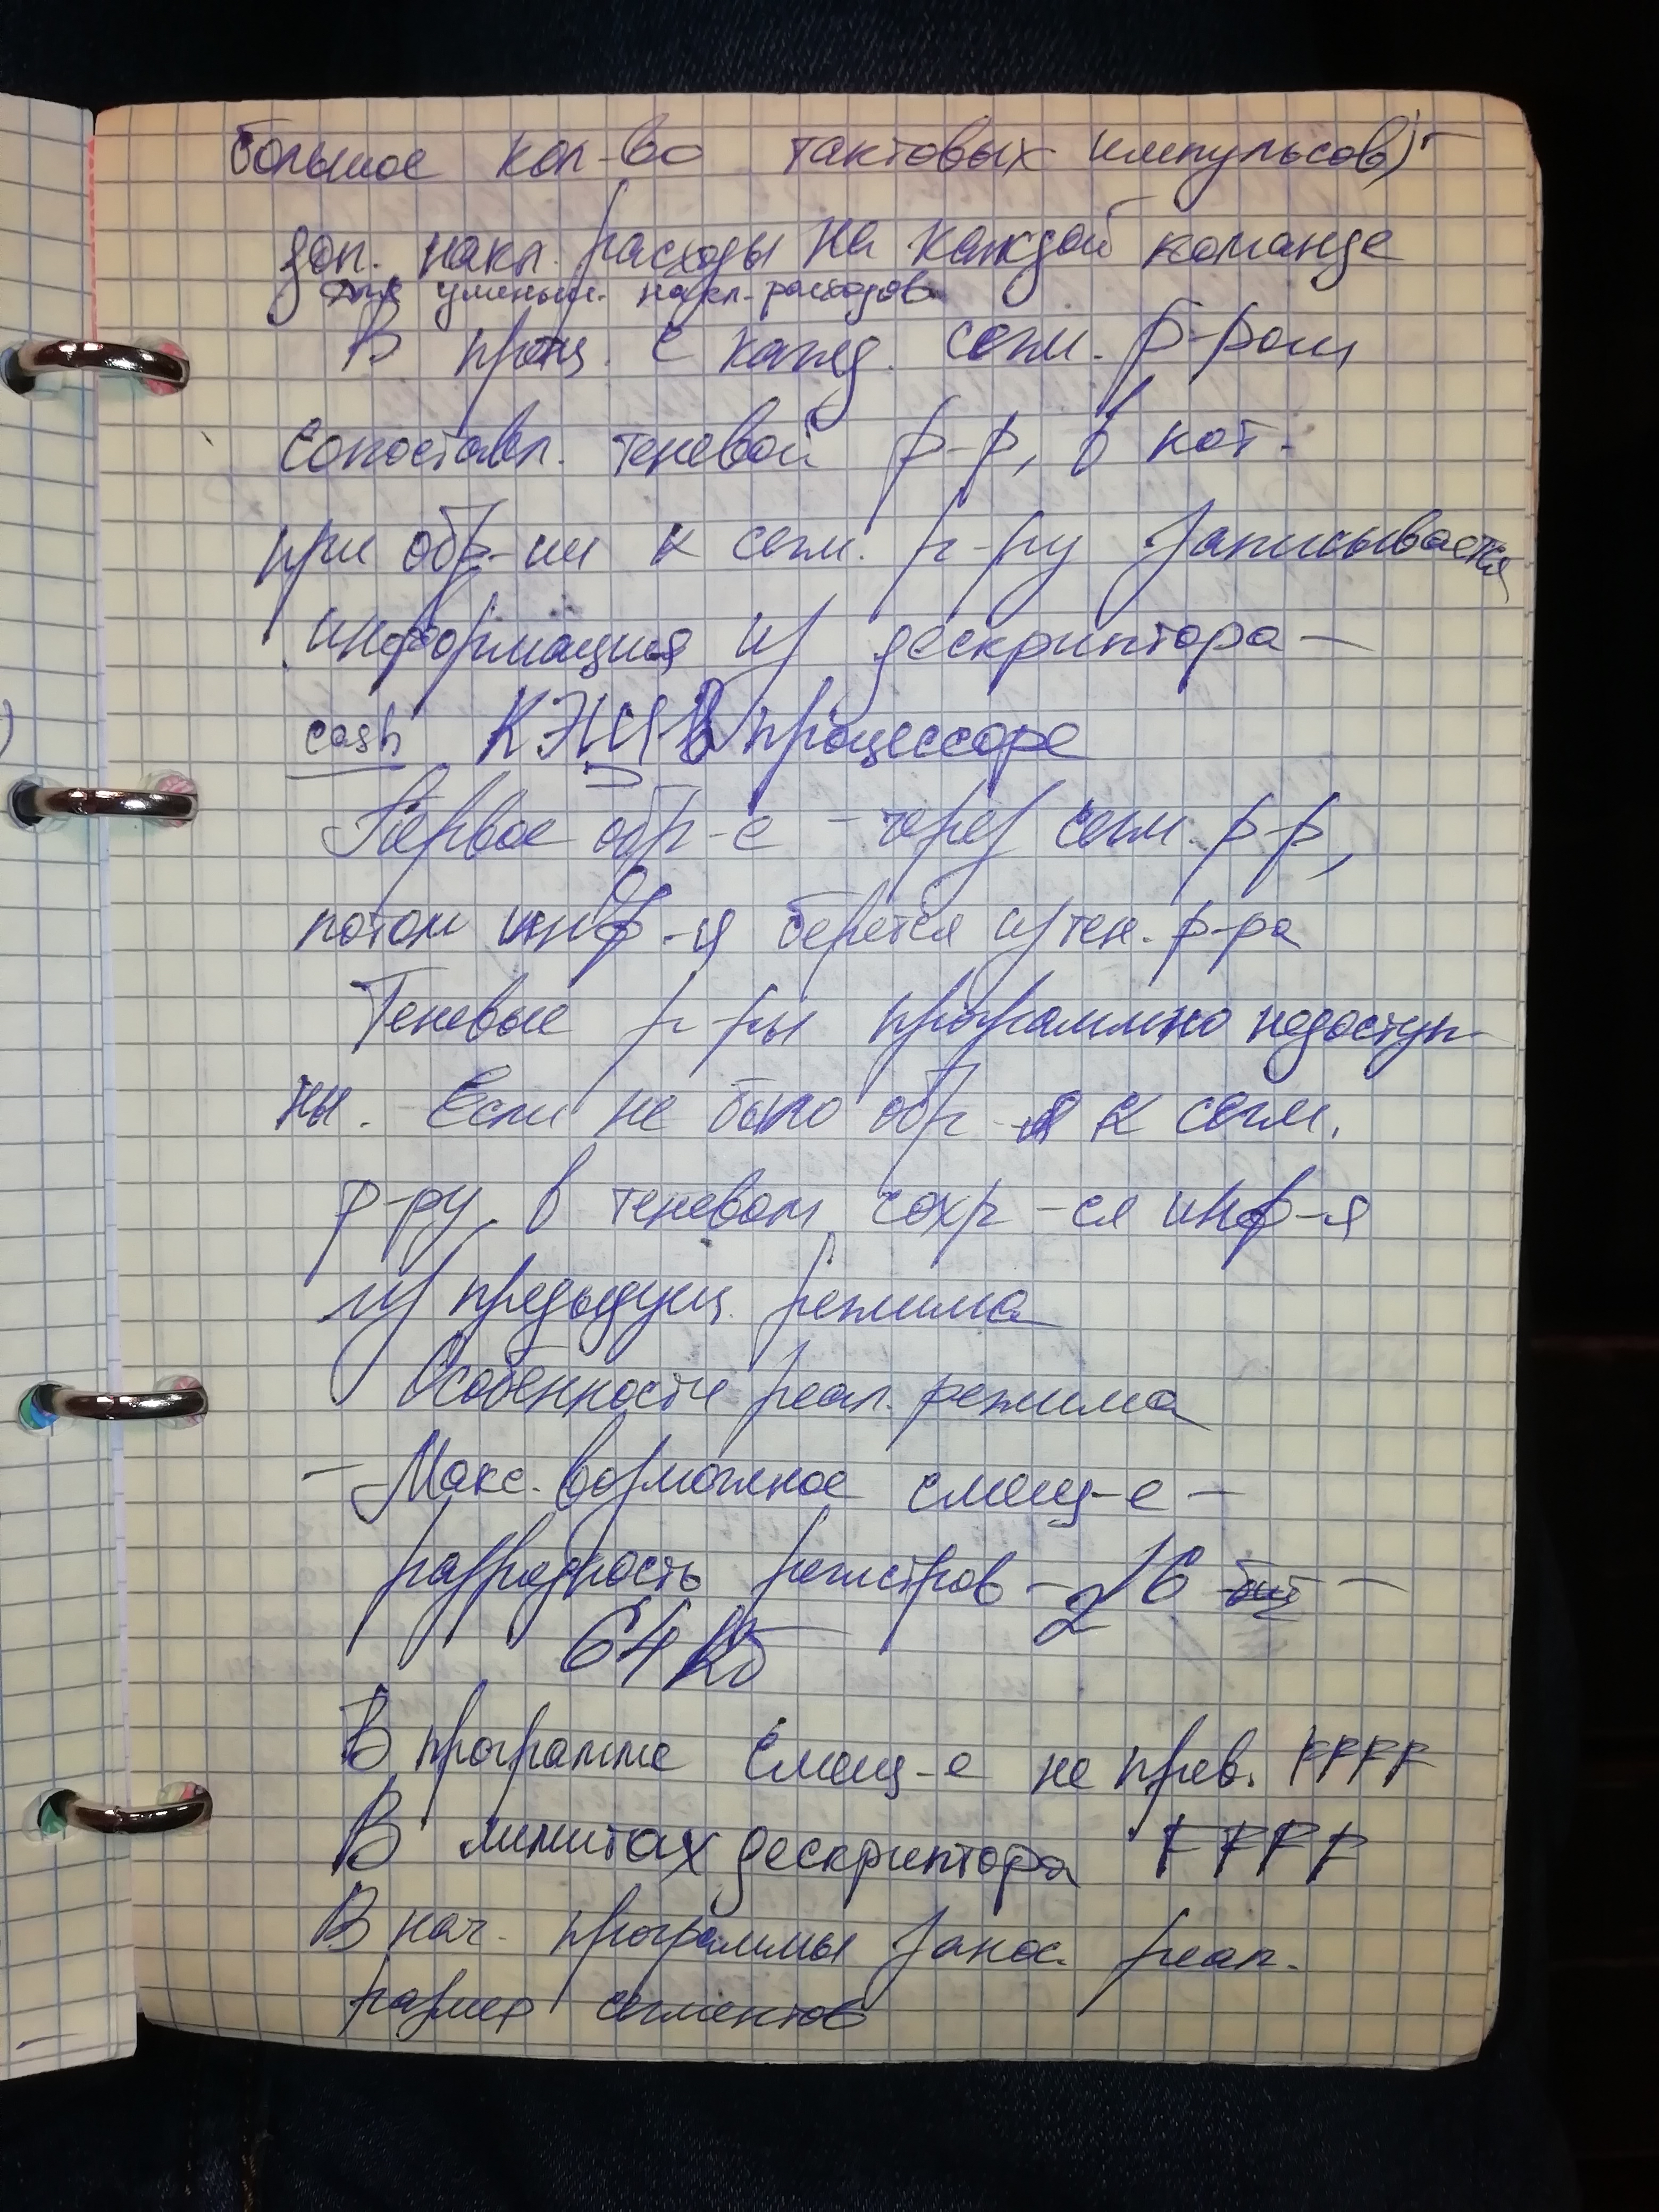 большое кол-во тактовых импульсов)-
доп. накл. расходы на каждой команде
для уменьш. накл. расходов
В проц. с кажд. сегм. р-ром
сопоставл. теневой р-р, в кот.
при обр-ии к сегм. р-ру записывается
информация из дескриптора –
cash КЭШ в процессоре
Первое обр-е – через сегм. р-р,
потом инф-я берется из тен. р-ра
Теневые р-ры программно недоступ-
ны. Если не было обр-я к сегм.
р-ру, в теневом сохр-ся инф-я
из предыдущ. режима
Особенности реал. режима
– Макс. возможное смещ-е –
разрядность регистров – 2^16 бит –
64 Кб
В программе смещ-е не прев. FFFF
В лимитах дескриптора FFFF
В нач. программы занос. реал.
размер сегментов